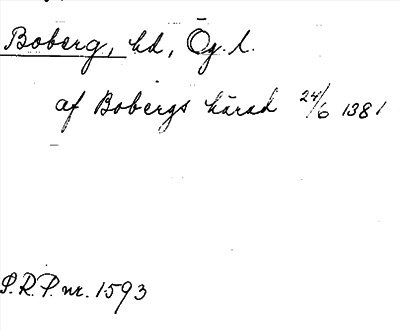 Boberg, hd, Ög. l.
af Bobergs härad 24/6 1381
S.R.P. nr. 1593